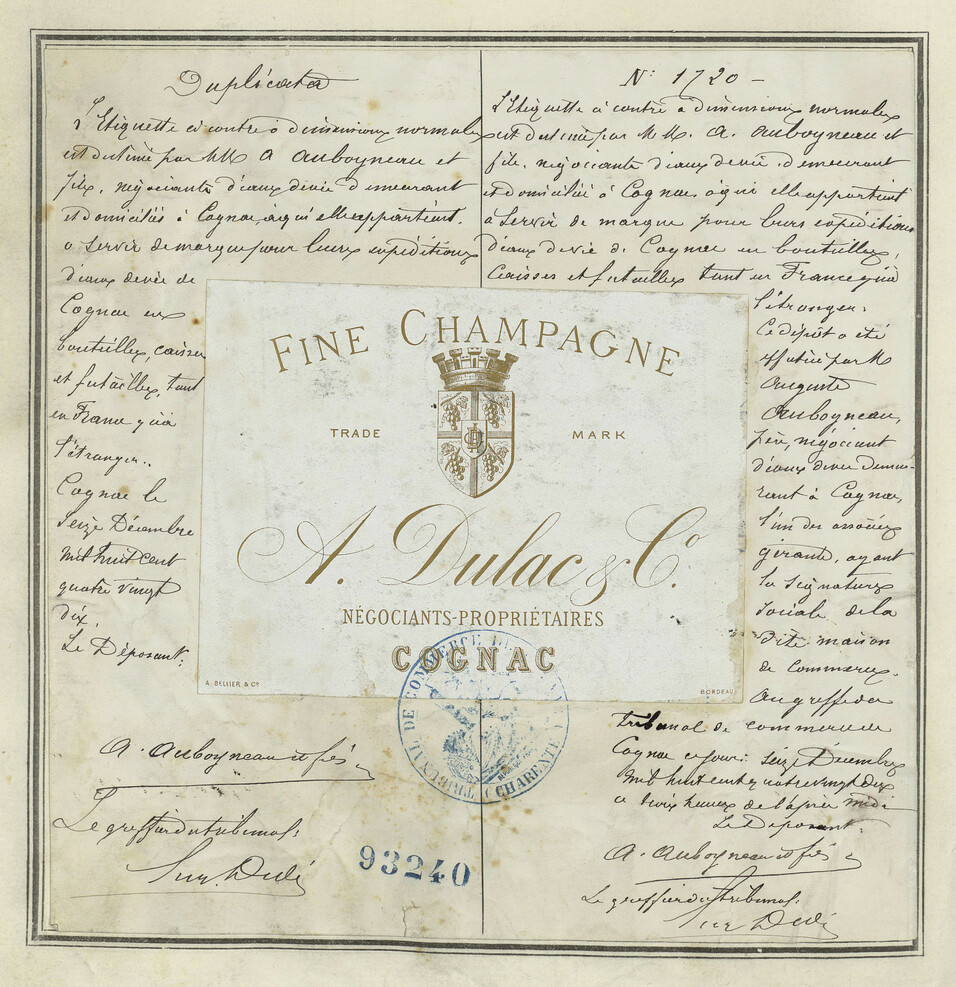 Duplicata
L'Etiquette ci contre o dimensions normales
est destinée par MM A Auboyneau et
fils, négociants d'eaux de vie demeurant
et domiciliés à Cognac, à qui elle appartient,
à servir de marque pour leurs expéditions
d'eaux de vie de
Cognac en
bouteilles, caisses
et futailles, tant
en France qu'à
l'étranger..
Cognac le
Seize Décembre
Mil huit cent
quatre vingt
dix.
Le Déposant:
A. Auboyneau et fils
Le greffier du tribunal:
N° 1720 -
L'Etiquette ci contre o dimensions normales
est destinée par MM. A. Auboyneau et
fils, négociants d'eaux de vie, demeurant
et domiciliés à Cognac, à qui elle appartient
à servir de marque pour leurs expéditions
d'eaux de vie de Cognac en bouteilles,
Caisses et futailles tant en France qu'à
l'étranger.
Ce dépôt a été
effectué par M
Auguste
Auboyneau,
père, négociant
d'eaux de vie demeu-
rant à Cognac,
l'un des associés
gérants, ayant
la signature
sociale de la
dite maison
de commerce.
Au greffe du
tribunal de commerce de
Cognac ce jour: seize Décembre
Mil huit cent quatre vingt dix
à trois heures de l'après midi
Le Déposant:
A. Auboyneau et fils
Le greffier du tribunal:
FINE CHAMPAGNE
TRADE MARK
A. Dulac & Co.
NÉGOCIANTS-PROPRIÉTAIRES
COGNAC
A. BELLIER & Cie BORDEAUX
TRIBUNAL DE COMMERCE DE
CHARENTE
93240